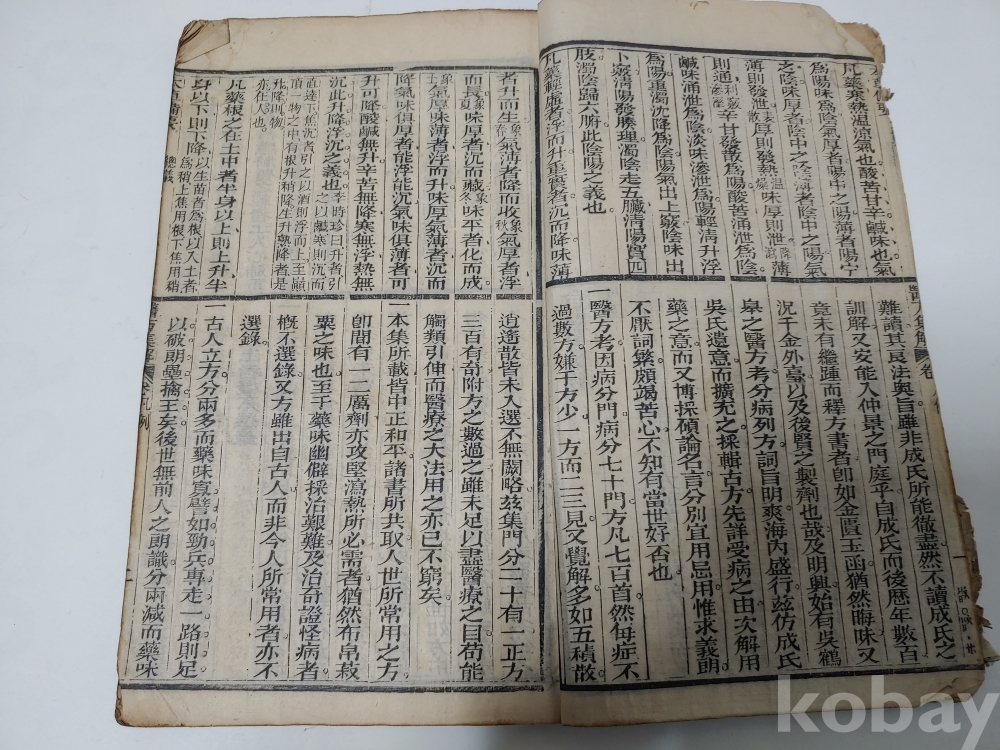 凡藥寒熱溫涼氣也酸苦甘辛鹹味也氣
為陽味為陰氣厚者陽中之陽薄者陽中
之陰味厚者陰中之陰薄者陰中之陽氣
薄則發泄厚則發熱味厚則泄薄
則通辛甘發散為陽酸苦涌泄為陰
鹹味涌泄為陰淡味滲泄為陽輕清升浮
為陽重濁沉降為陰陽氣出上竅陰味出
下竅清陽發腠理濁陰走五臟清陽實四
肢濁陰歸六腑此陰陽之義也
凡藥輕虛者浮而升重實者沉而降味薄
者升而生象春氣薄者降而收象秋氣厚者浮
而長象夏味厚者沉而藏象冬味平者化而成
氣厚味薄者浮而升味厚氣薄者沉而
降氣味俱厚者能浮能沉氣味俱薄者可
升可降酸鹹無升辛甘無降寒無浮熱無
沉此升降浮沉之義也李時珍曰升者引之以鹹寒則沉而
直達下焦沉者引之以酒則浮而上至巔
頂一物之中有根升稍降生升熟降者是
升降在物亦在人也
凡藥根之在土中者半身以上則上升半
身以下則下降以生苗者為根以入土者為稍上焦用根下焦用稍
難讀其良法奧旨雖非成氏所能徹盡然不讀成氏之
訓解又安能入仲景之門庭乎自成氏而後歷年數百
竟未有繼踵而釋方書者即如金匱玉函猶然晦昧又
況千金外臺以及後賢之製劑也哉及明興始有吳鶴
皋之醫方考分病列方詞旨明爽海內盛行茲仿成氏
吳氏遺意而擴充之採輯古方先詳受病之由次解用
藥之意而又博採碩論名言分別宜用忌用惟求義朗
不厭詞繁頗竭苦心不知有當世好否也
一醫方考因病分門病分七十門方凡七百首然每症不
過數方嫌于方少一方而二三見又覺解多如五積散
逍遙散皆未入選不無闕略茲集門分二十有一正方
三百有奇附方之數過之雖未足以盡醫療之目苟能
觸類引伸而醫療之大法用之亦已不窮矣
一本集所載皆中正和平諸書所共取人世所常用之方
即間有一二厲劑亦攻堅瀉熱所必需者猶然布帛菽
粟之味也至于藥味幽僻採治艱難及治奇證怪病者
概不選錄又方雖出自古人而非今人所常用者亦不
選錄
一古人立方分兩多而藥味寡譬如勁兵專走一路則足
以破朗壘擒王矣後世無前人之朗識分兩減而藥味
醫方集解
卷
凡例
kobay